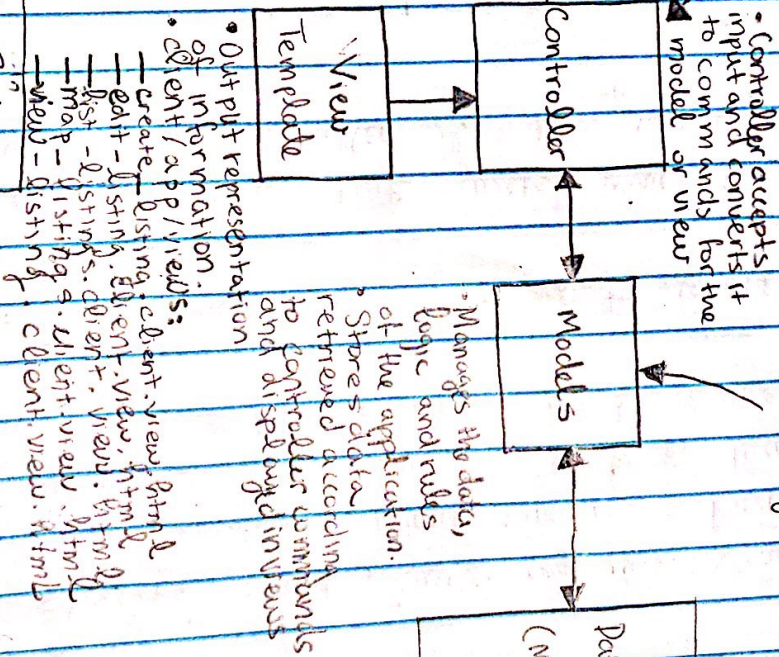 • Controller accepts
input and converts it
to commands for the
model or view
Controller
Models
• Manages the data,
logic and rules
of the application.
• Stores data
retrieved according
to controller commands
and displayed in views
View
Template
• Output representation
of information.
• client/app/views:
— create-listing.client.view.html
— edit-listing.client.view.html
— list-listings.client.view.html
— map-listings.client.view.html
— view-listing.client.view.html